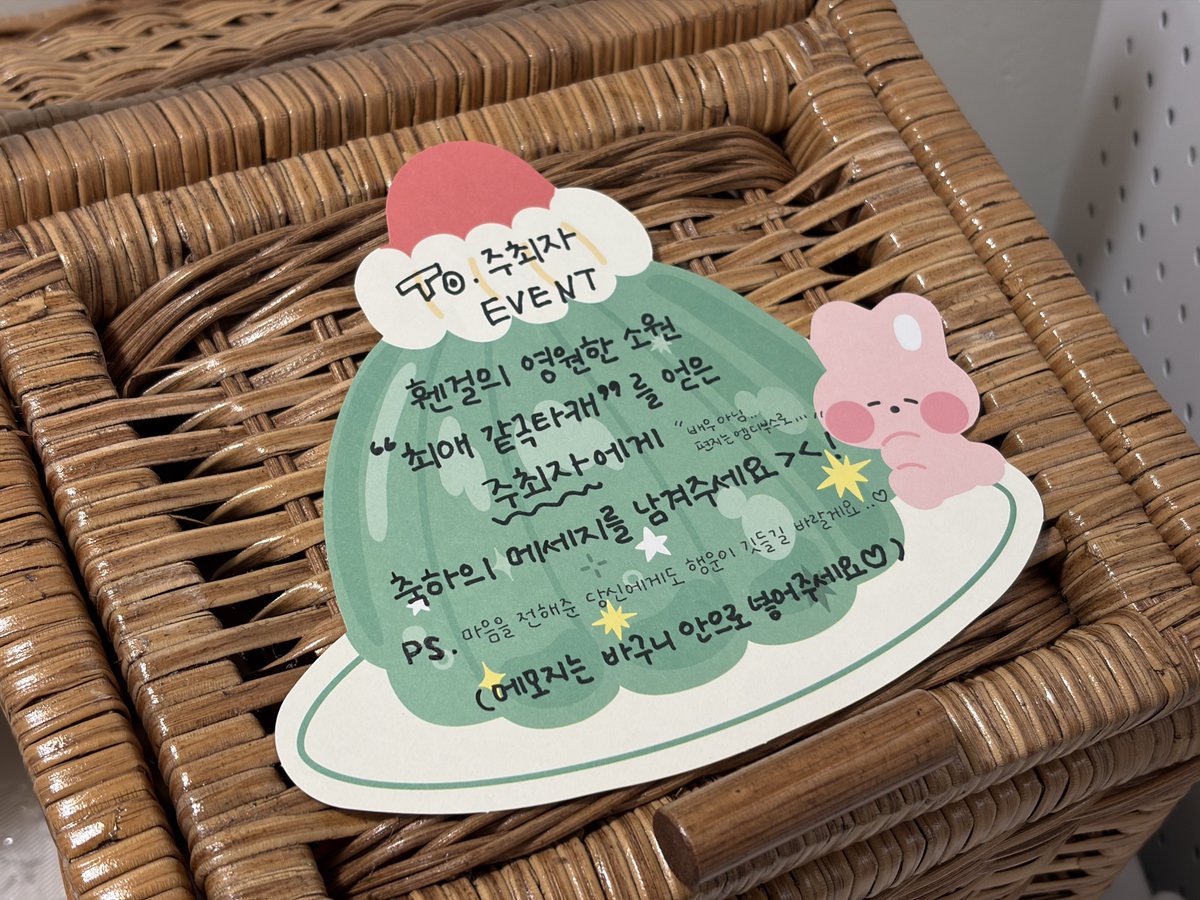 To. 주최자
EVENT
휀걸의 영원한 소원
“최애 같극타캐”를 얻은
주최자에게 "배우 아님..
편지는 엠디부스로..."
축하의 메세지를 남겨주세요 > < !
PS. 마음을 전해준 당신에게도 행운이 깃들길 바랄게요..♡
(메모지는 바구니 안으로 넣어주세요♡)